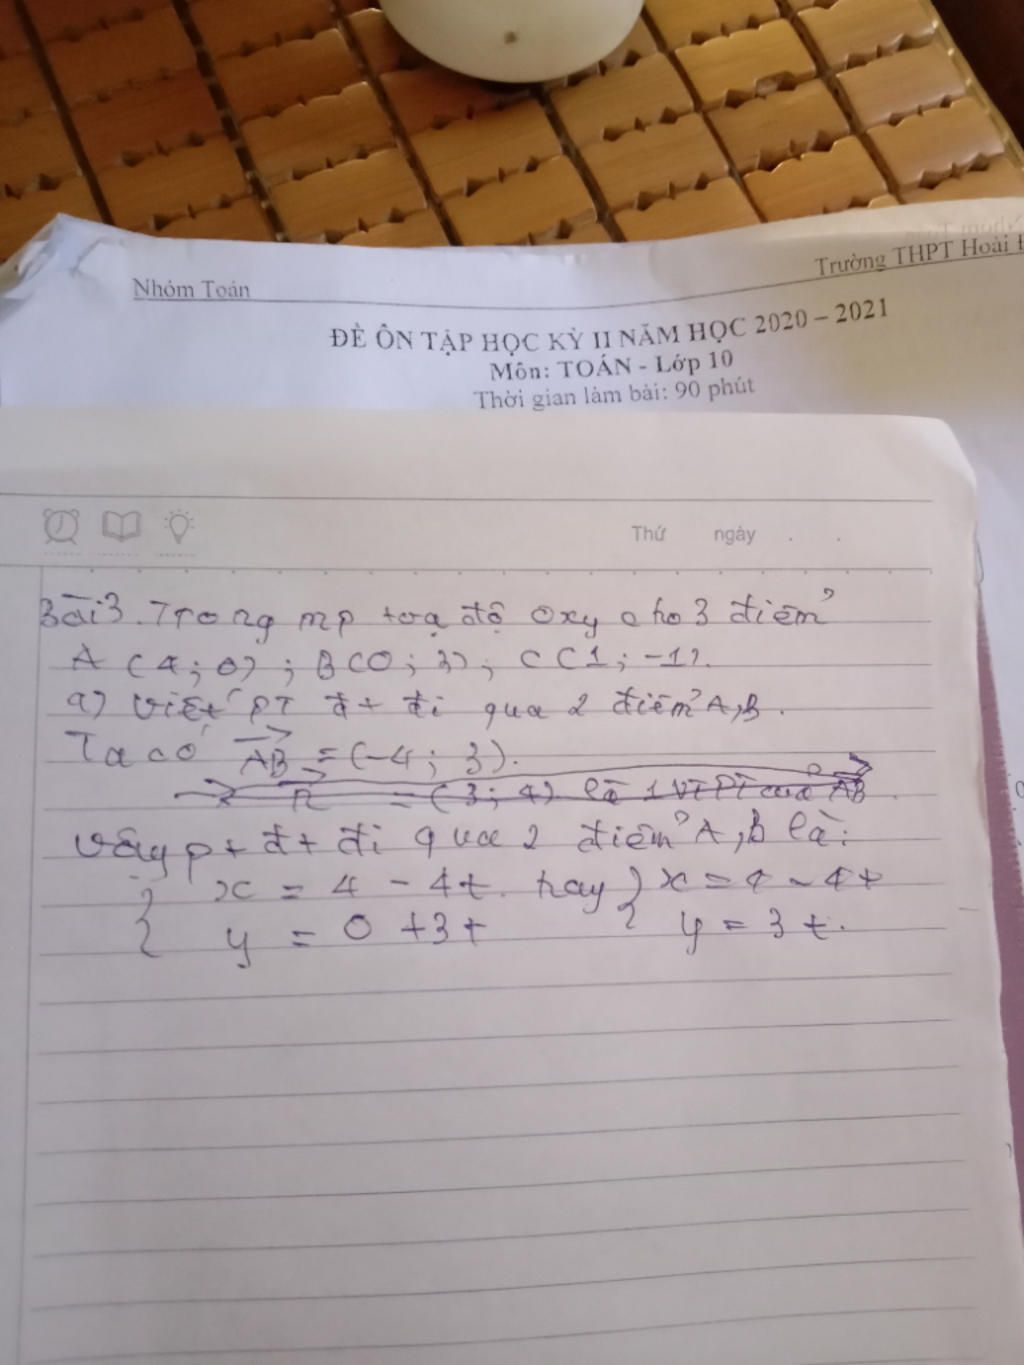 Nhóm Toán
Trường THPT Hoài
ĐỀ ÔN TẬP HỌC KỲ II NĂM HỌC 2020 – 2021
Môn: TOÁN - Lớp 10
Thời gian làm bài: 90 phút
Thứ ngày . .
Bài 3. Trong mp toạ độ oxy cho 3 điểm
A (4; 0); B(0; 3); C(1; -1).
a) Viết PT đt đi qua 2 điểm A,B.
Ta có AB = (-4; 3).
n = (3; 4) là 1 VTPT của AB
Vậy pt đt đi qua 2 điểm A,B là:
{ x = 4 - 4t. hay { x = 4 - 4t
y = 0 + 3t y = 3t.